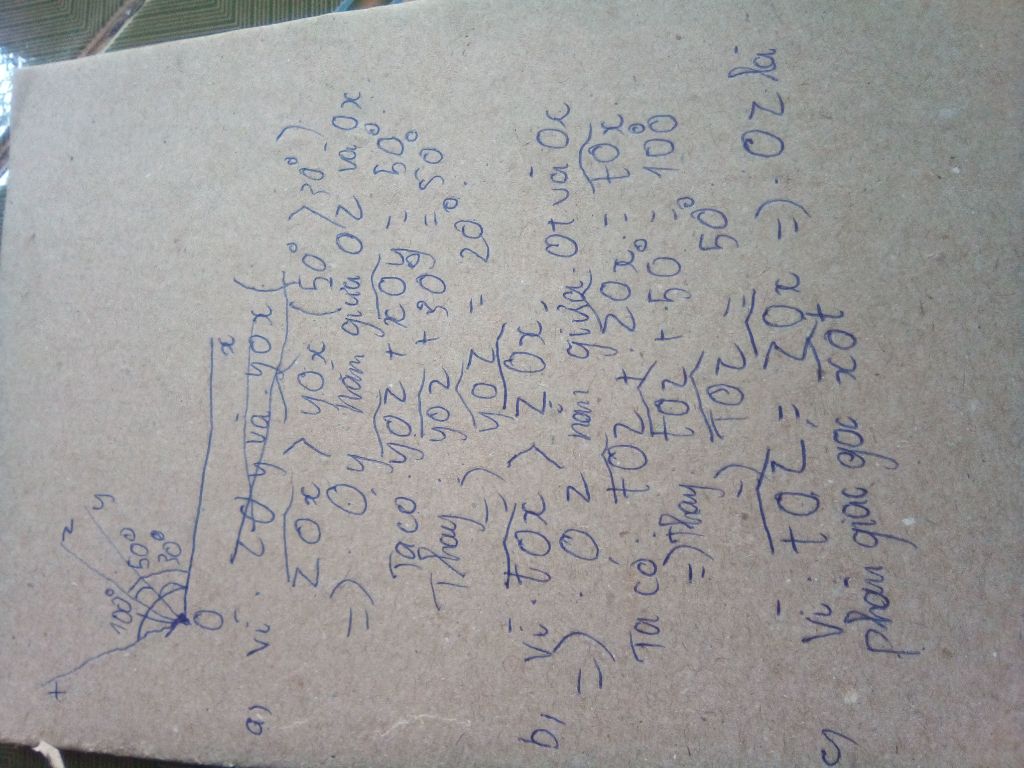 t
z
y
100°
50°
30°
O
x
a) Vì zOy và yOx (
zOx > yOx (50° > 30°)
=) Oy nằm giữa Oz và Ox.
Ta có yOz + xOy = 50°
Thay yOz + 30° = 50°
=) yOz = 20°.
b, Vì tOx > zOx.
=) Oz nằm giữa Ot và Ox
Ta có: tOz + zOx = tOx
=) Thay tOz + 50° = 100°
=) tOz = 50°
c) Vì tOz = zOx =) Oz là
phân giác góc xOt